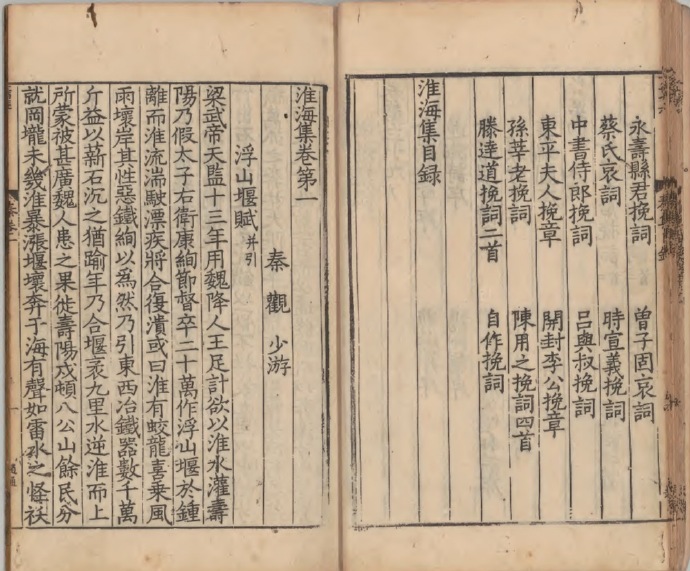 永壽縣君挽詞 曾子固哀詞
蔡氏哀詞 時宣義挽詞
中書侍郎挽詞 呂與叔挽詞
東平夫人挽章 開封李公挽章
孫莘老挽詞 陳用之挽詞四首
滕達道挽詞二首 自作挽詞
淮海集目録
淮海集卷第一
秦觀 少游
浮山堰賦并引
梁武帝天監十三年用魏降人王足計欲以淮水灌壽
陽乃假太子右衛康絢節督卒二十萬作浮山堰於鍾
離而淮流湍駛漂疾將合復潰或曰淮有蛟龍喜乗風
雨壞岸其性惡鐵絢以為然乃引東西冶鐵器數千萬
斤益以薪石沉之猶踰年乃合堰袤九里水逆淮而上
所蒙被甚廣魏人患之果徙壽陽戍頓八公山餘民分
就岡壠未幾淮暴漲堰壞奔于海有聲如雷水之怪祅